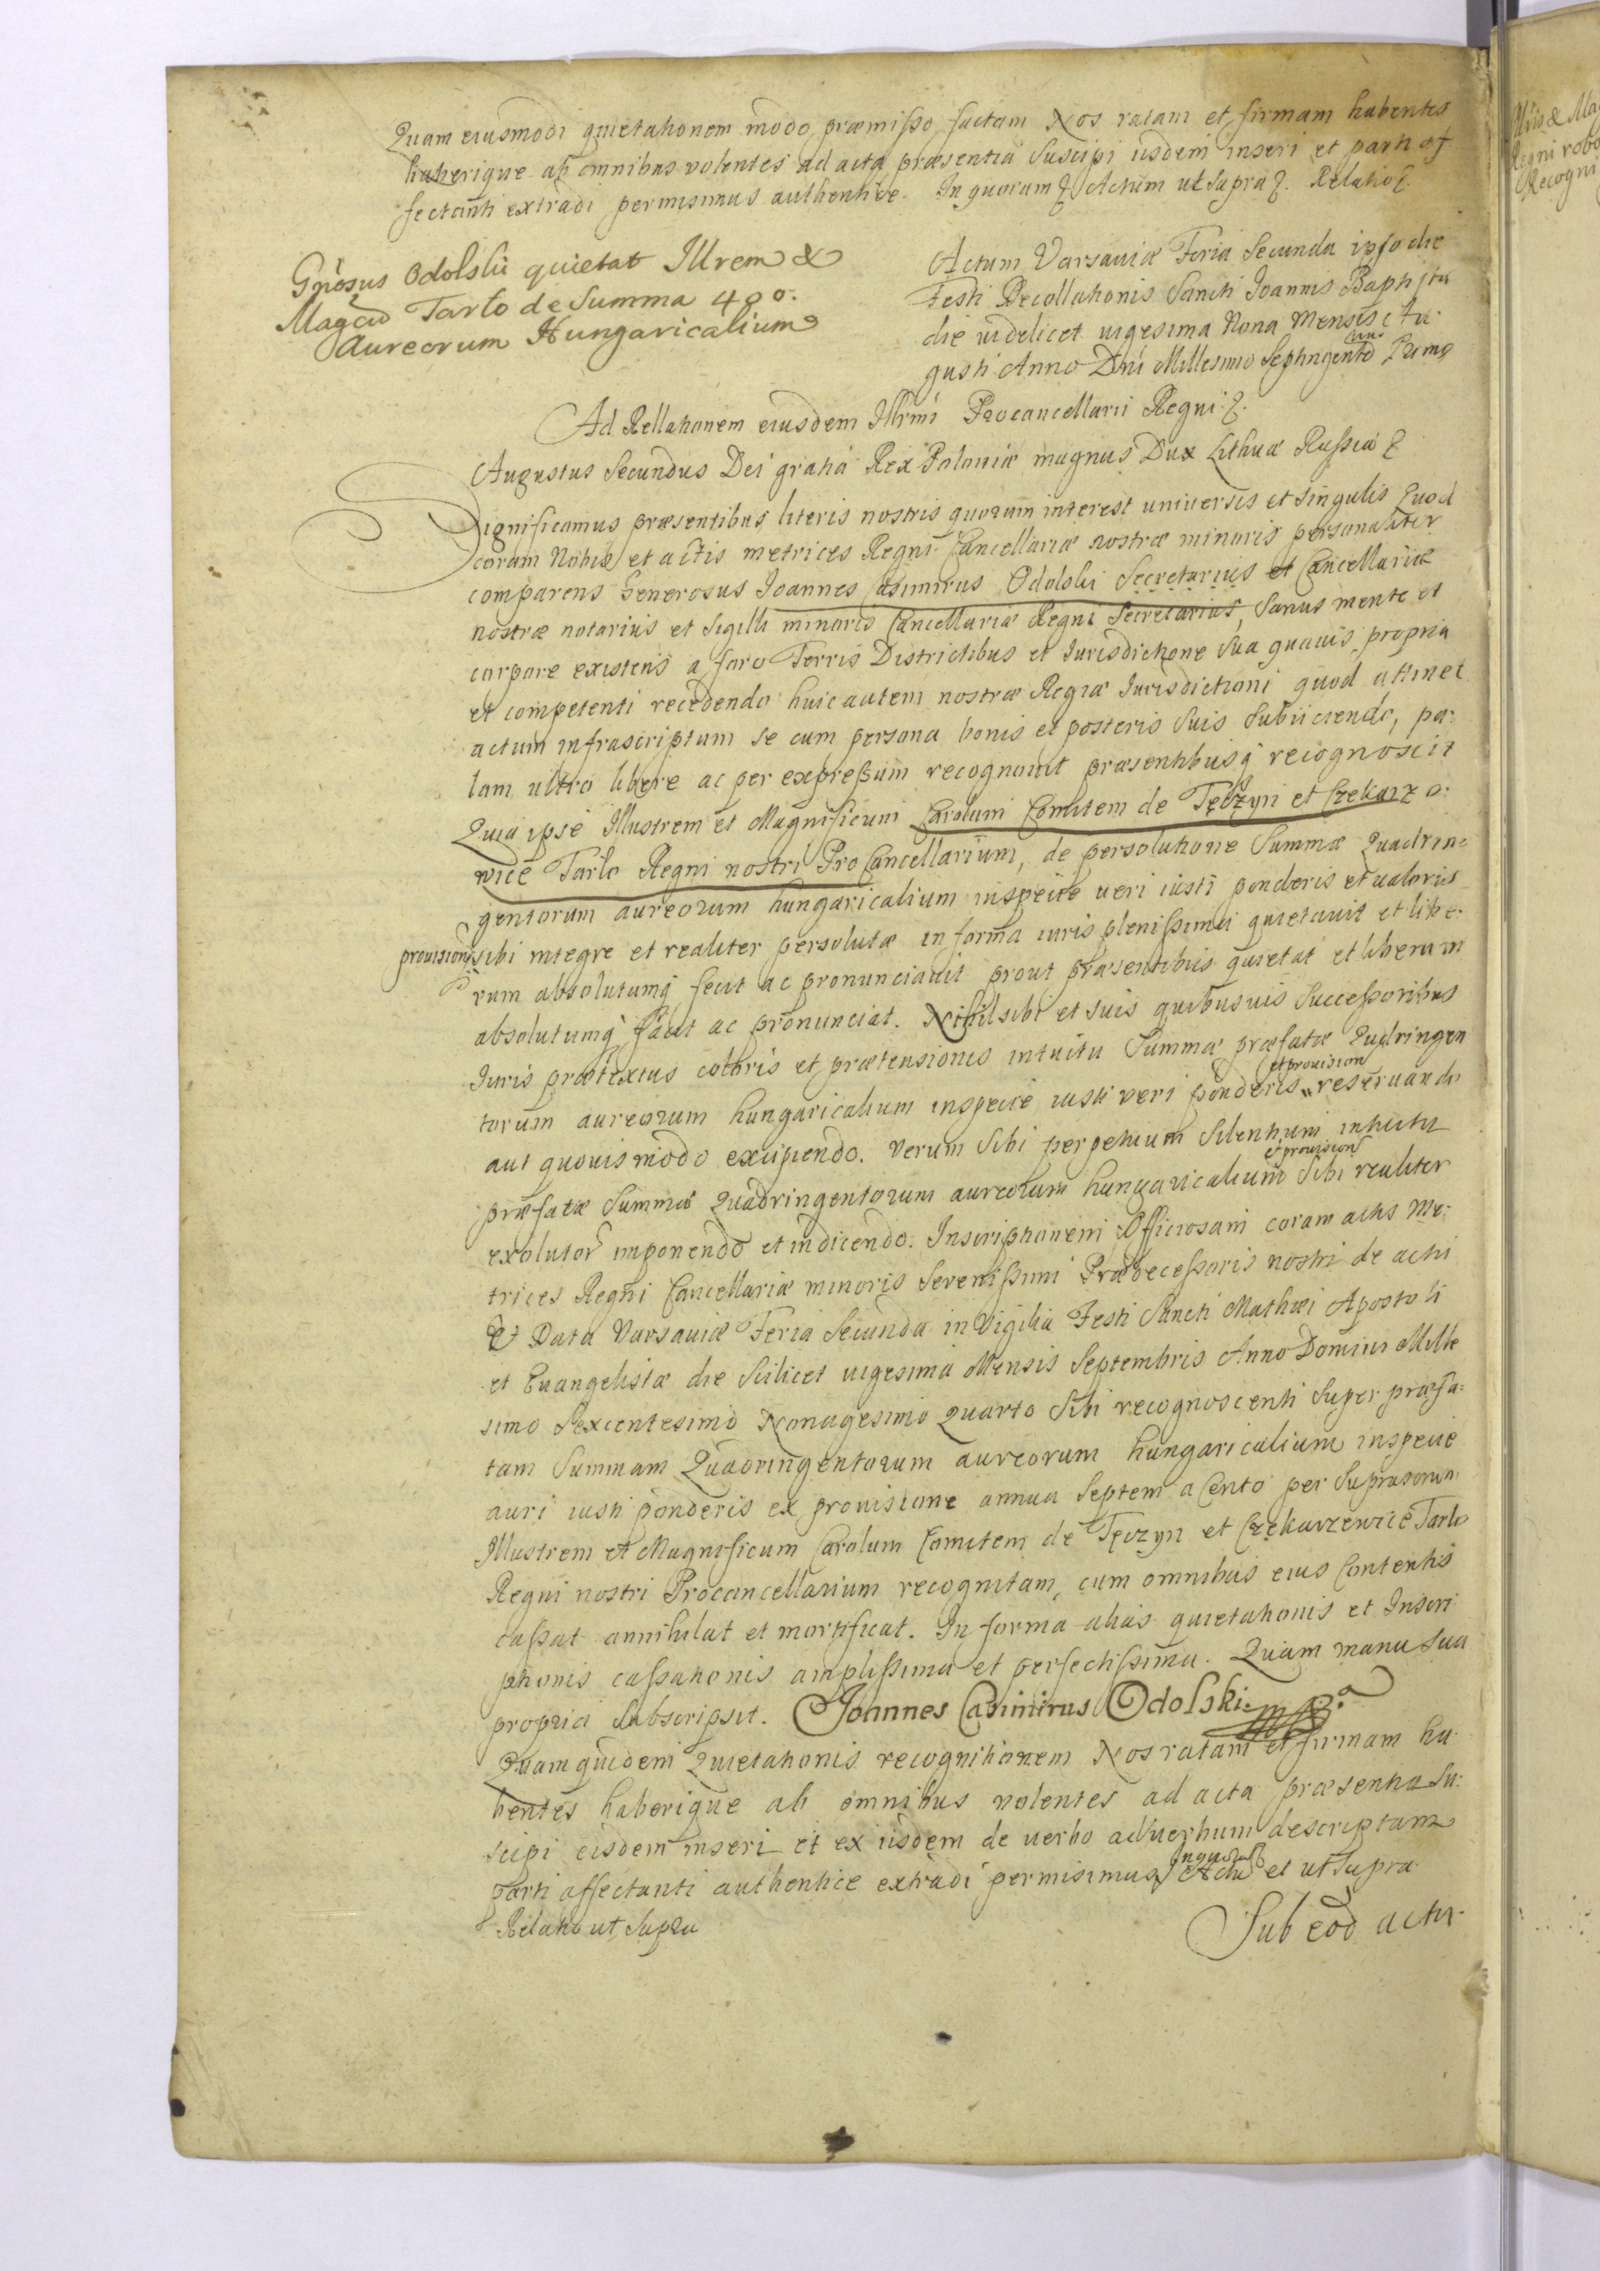 Quam eiusmodi quietationem modo præmisso factam Nos ratam et firmam habentes
haberique ab omnibus volentes ad acta præsentia suscipi iisdem inseri et parti af
fectanti extradi permisimus authentice. In quorum Actum ut supra. Relatio
Gnosus Odolski quietat Illrem &
Magcum Tarło de Summa 400.
Aureorum Hungaricalium
Actum Varsaviæ Feria Secunda ipso die
Festi Decollationis Sancti Joannis Baptistæ
die videlicet vigesima Nona Mensis Au-
gusti Anno Dni Millesimo Septingento Primo
Ad Rellationem eiusdem Illrmi Procancellarii Regni
Augustus Secundus Dei gratia Rex Poloniæ magnus Dux Lithuæ Russiæ
Significamus præsentibus literis nostris quorum interest universis et singulis Quod
coram Nobis et actis metrices Regni Cancellariæ nostræ minoris personaliter
comparens Generosus Joannes Casimirus Odolski Secretarius et Cancellariæ
nostræ notarius et Sigilli minoris Cancellariæ Regni Secretarius, Sanus mente et
corpore existens a foro Terris Districtibus et Iurisdictione sua quavis propria
et competenti recedendo huic autem nostræ Regiæ Iurisdictioni quod attinet
actum infrascriptum se cum persona bonis et posteris suis subiiciendo, pa-
lam ultro libere ac per expressum recognovit præsentibusq recognoscit
Quia ipse Illustrem et Magnificum Carolum Comitem de Tęczyn et Czekarzo-
wice Tarło Regni nostri ProCancellarium, de persolutione Summæ Quadrin-
gentorum aureorum hungaricalium inspecie veri iusti ponderis et valoris
provision sibi integre et realiter persolutæ in forma iuris plenissima quietavit et libe-
rum absolutumq fecit ac pronunciavit prout præsentibus quietat et liberum
absolutumq facit ac pronunciat. Nihil sibi et suis quibusvis Successoribus
Iuris prætextus coloris et prætensionis intuitu Summæ præfatæ Quadringen
et provision
torum aureorum hungaricalium inspecie iusti veri ponderis reservando
aut quovis modo excipiendo. Verum sibi perpetuum silentium intuitu
et provision
præfatæ Summæ Quadringentorum aureorum hungaricalium sibi realiter
exolutor imponendo et indicendo. Inscriptionem Officiosam coram actis Me-
trices Regni Cancellariæ minoris Serenissimi Prædecessoris nostri de actu
et Data Varsaviæ Feria Secunda in Vigilia Festi Sancti Mathæi Apostoli
et Evangelistæ die scilicet vigesima Mensis Septembris Anno Domini Mille
simo Sexcentesimo Nonagesimo Quarto sibi recognoscenti super præfa-
tam Summam Quadringentorum aureorum hungaricalium inspecie
auri iusti ponderis ex provisione annua Septem a Cento per Supranomin
Illustrem et Magnificum Carolum Comitem de Tęczyn et Czekarzewice Tarło
Regni nostri Procancellarium recognitam, cum omnibus eius Contentis
cassat annihilat et mortificat. In forma alias quietationis et Inscri
ptionis cassationis amplissima et perfectissima. Quam manu sua
propria subscripsit. Joannes Casimirus Odolski mp
Quam quidem Quietationis recognitionem Nos ratam et firmam ha-
bentes haberique ab omnibus volentes ad acta præsentia su-
scipi eisdem inseri et ex iisdem de verbo ad verbum descriptam
parti affectanti authentice extradi permisimus Inquor Actu et ut supra
Relatio ut supra
Sub eod actu